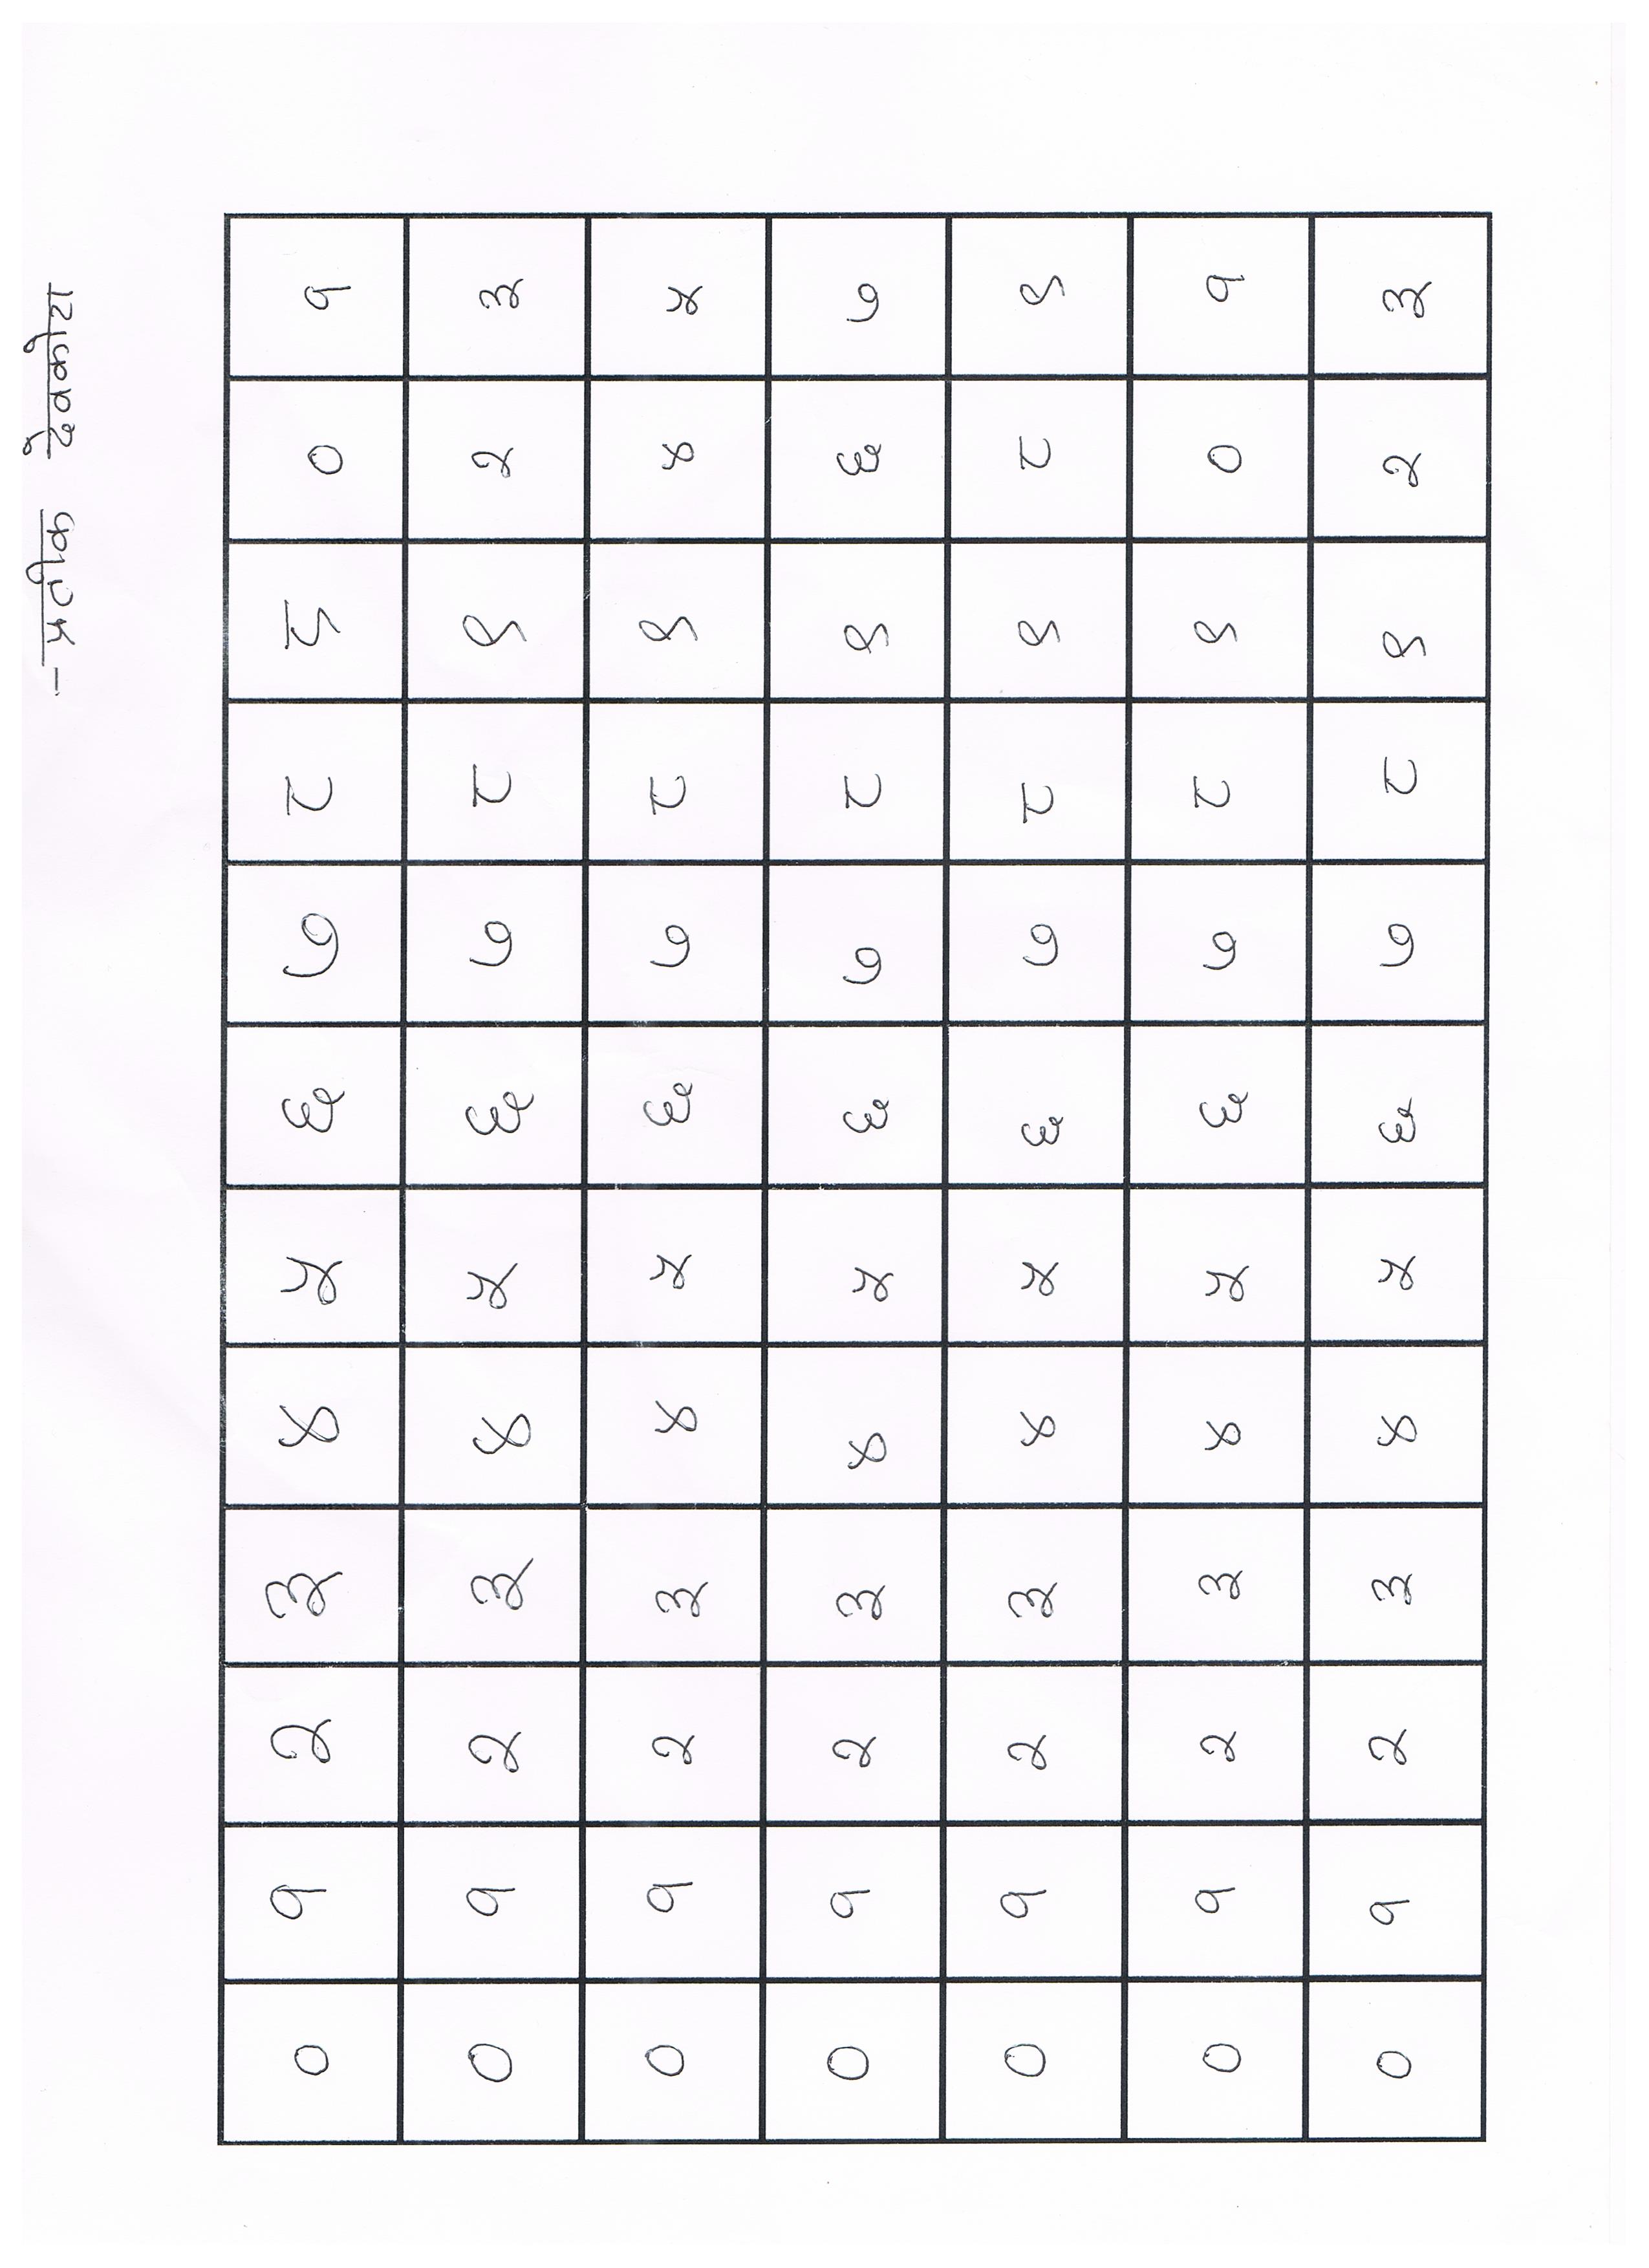 - प्रतीक देवकोटा
० १ २ ३ ४ ५ ६ ७ ८ ९ ० १
० १ २ ३ ४ ५ ६ ७ ८ ९ २ ३
० १ २ ३ ४ ५ ६ ७ ८ ९ ४ ५
० १ २ ३ ४ ५ ६ ७ ८ ९ ६ ७
० १ २ ३ ४ ५ ६ ७ ८ ९ ८ ९
० १ २ ३ ४ ५ ६ ७ ८ ९ ० १
० १ २ ३ ४ ५ ६ ७ ८ ९ २ ३